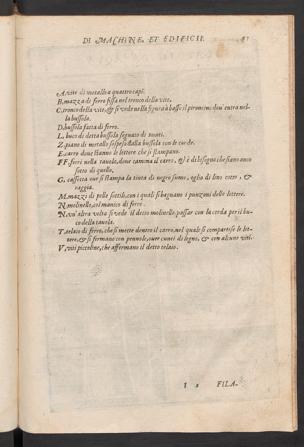 DI MACHINE ET EDIFICII.
A, vite di metallo a quattro capi.
B, mazza di ferro fissa nel tronco della vite.
C, tronco della vite, & si vede nella figura à basso il pironcino ch'entra nel-
la bussola.
D, bussola fatta di ferro.
L, buco di detta bussola segnato di punti.
Z, piano di metallo sospeso dalla bussola con le corde.
E, carro doue stanno le lettere che si stampano.
FF, ferri nella tauola, doue camina il carro, & è di bisogno che siano onti
sotto di quello.
G, cassetta oue si stampa la tinta di negro fumo, oglio di lino cotto, &
raggia.
M, mazzi di pelle sottili, con i quali si bagnano i punzoni delle lettere.
N, molinello, col manico di ferro.
N, vn'altra volta si vede il detto molinello, passar con la corda per il bu-
co della tauola.
T, telaio di ferro, che si mette dentro il carro, nel quale si compartisce le let-
tere, & si fermano con pennole, ouer cunei di legno, & con alcune viti.
V, viti piccoline, che affermano il detto telaio.
FILA.